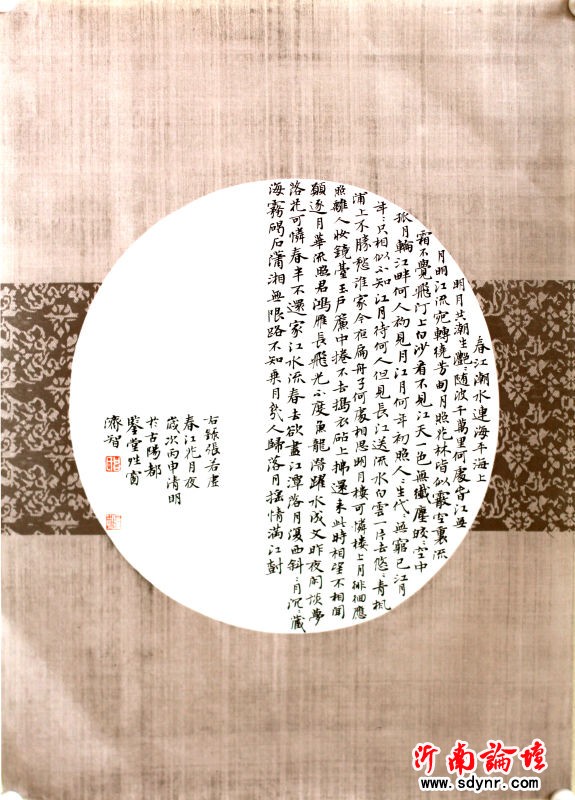 春江潮水連海平海上
明月共潮生灩〻隨波千萬里何處春江無
月明江流宛轉繞芳甸月照花林皆似霰空裏流
霜不覺飛汀上白沙看不見江天一色無纖塵皎〻空中
孤月輪江畔何人初見月江月何年初照人〻生代〻無窮已江月
年〻只相似不知江月待何人但見長江送流水白雲一片去悠〻青楓
浦上不勝愁誰家今夜扁舟子何處相思明月樓可憐樓上月徘徊應
照離人妝鏡臺玉戶簾中捲不去搗衣砧上拂還來此時相望不相聞
願逐月華流照君鴻雁長飛光不度魚龍潛躍水成文昨夜閑潭夢
落花可憐春半不還家江水流春去欲盡江潭落月復西斜〻月沉〻藏
海霧碣石瀟湘無限路不知乘月幾人歸落月搖情滿江樹
右錄張若虛
春江花月夜
歲次丙申清明
於古陽都
鑒堂雅窗
濟智
沂南論壇
www.sdynr.com